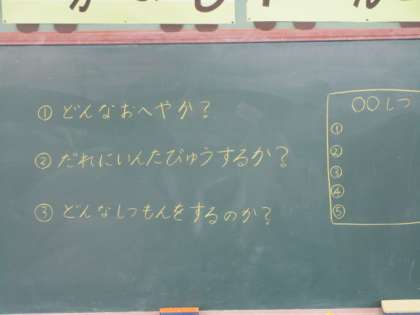 ① どんなおへやか？
② だれにいんたびゅうするか？
③ どんなしつもんをするのか？
○○しつ
①
②
③
④
⑤